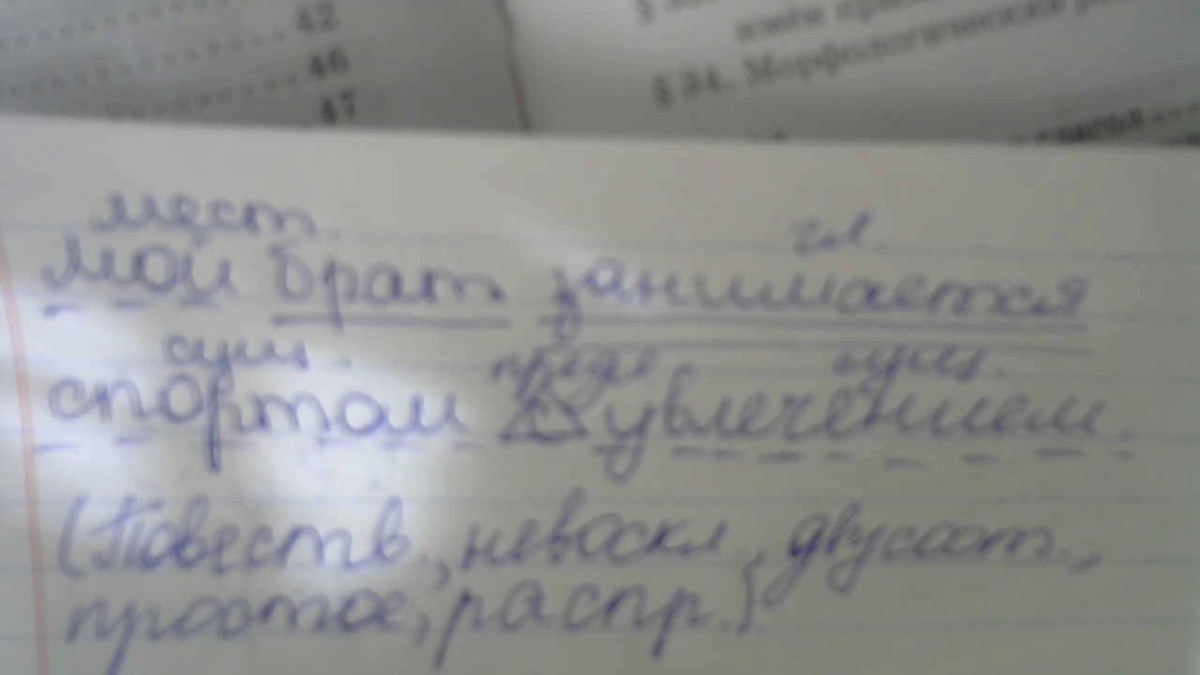 42
46
47
§ 34. Морфологический
мест.
Мой брат занимается
гл.
сущ. предл сущ.
спортом с увлечением.
(Повеств., невоскл., двусост.,
простое, распр.).